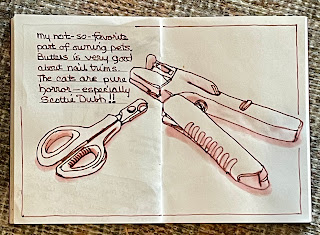 my not-so-favorite
part of owning pets.
Butters is very good
about nail trims.
The cats are pure
horror—especially
Scottie Dubh!!